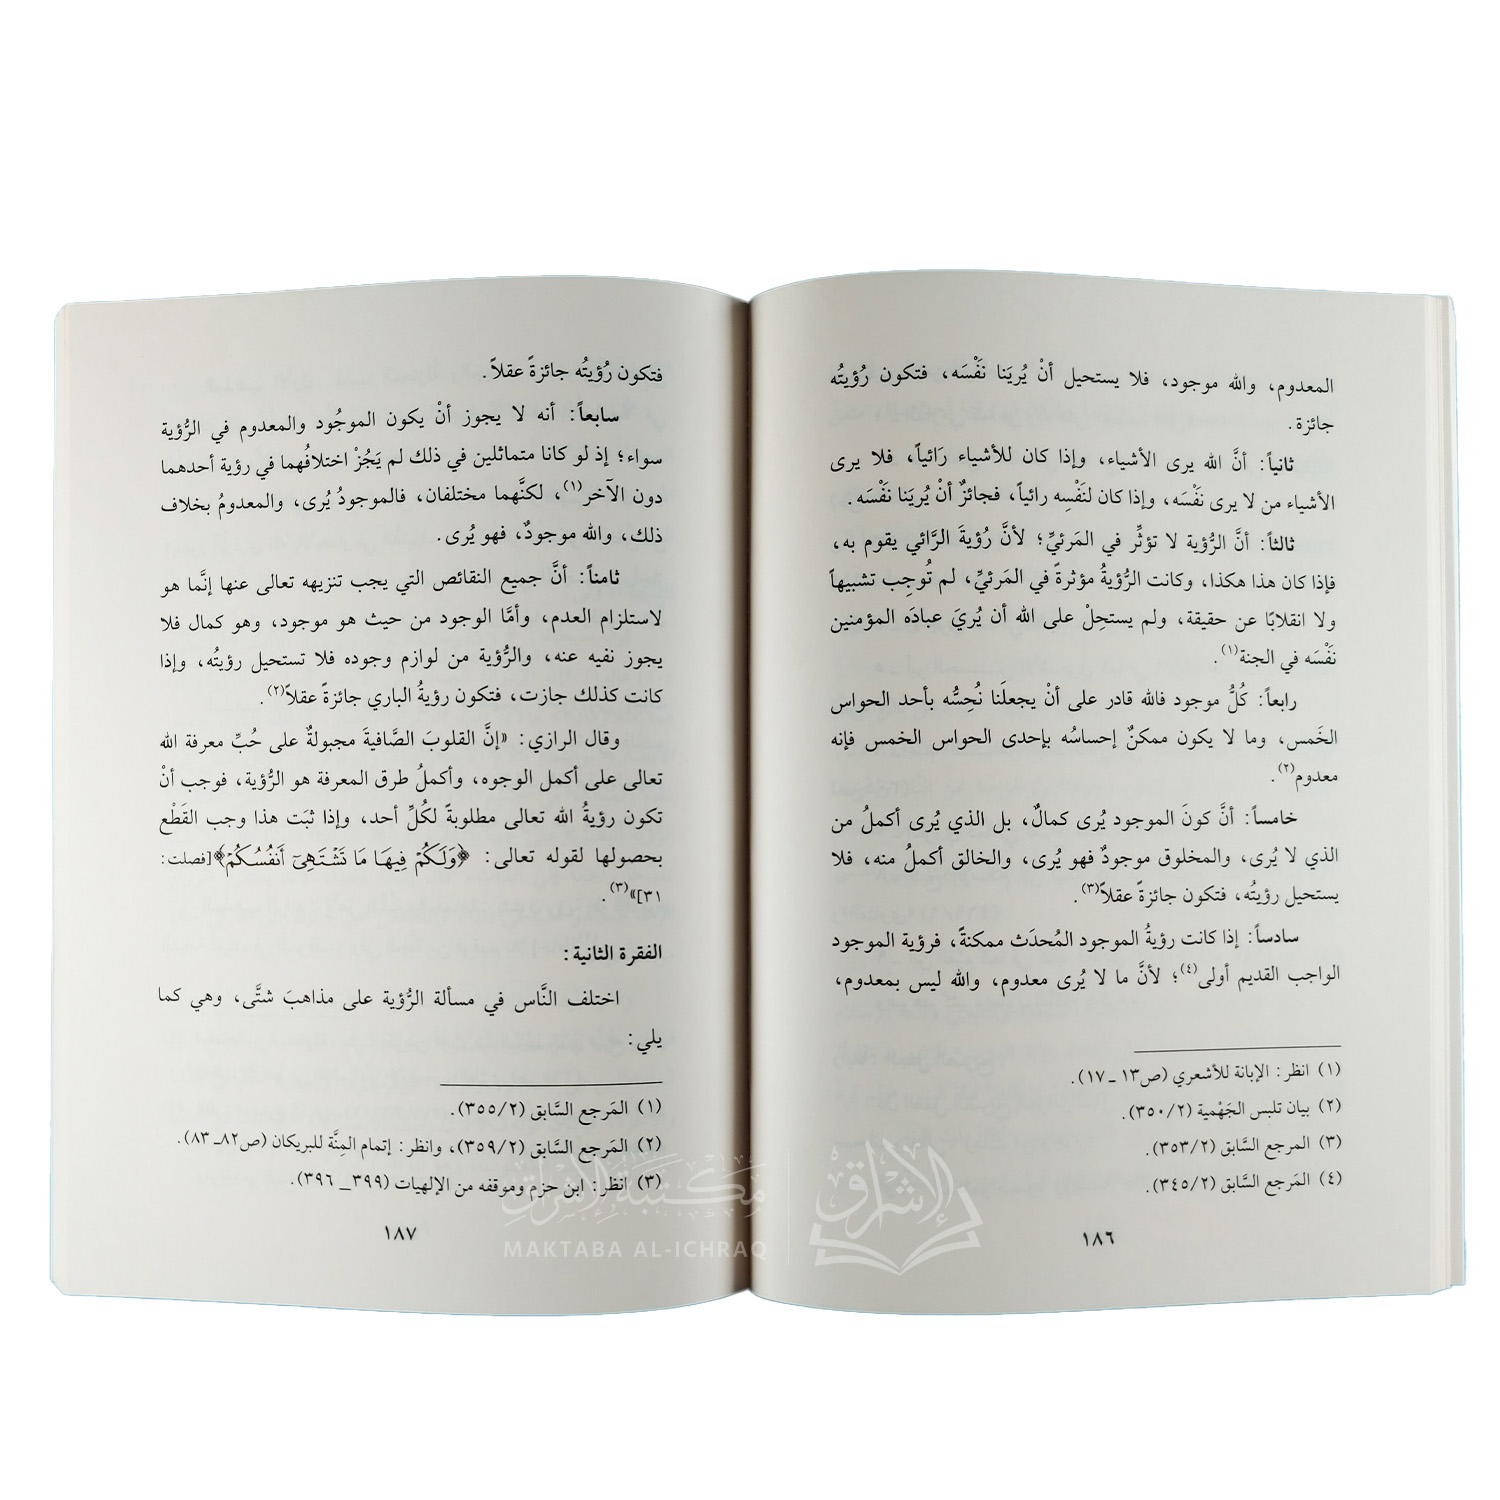 المعدوم، والله موجود، فلا يستحيل أنْ يُريَنا نَفْسَه، فتكون رُؤيتُه
جائزة.
ثانياً: أنَّ الله يرى الأشياء، وإذا كان للأشياء رَائياً، فلا يرى
الأشياء من لا يرى نَفْسَه، وإذا كان لنَفْسِه رائياً، فجائزٌ أنْ يُريَنا نَفْسَه.
ثالثاً: أنَّ الرُّؤية لا تؤثِّر في المَرئيِّ؛ لأنَّ رُؤيةَ الرَّائي يقوم به،
فإذا كان هذا هكذا، وكانت الرُّؤيةُ مؤثرةً في المَرئيِّ، لم تُوجِب تشبيهاً
ولا انقلابًا عن حقيقة، ولم يستحِلْ على الله أن يُريَ عبادَه المؤمنين
نَفْسَه في الجنة(١).
رابعاً: كُلُّ موجود فالله قادر على أنْ يجعلَنا نُحِسُّه بأحد الحواس
الخَمس، وما لا يكون ممكنٌ إحساسُه بإحدى الحواس الخمس فإنه
معدوم(٢).
خامساً: أنَّ كونَ الموجود يُرى كمالٌ، بل الذي يُرى أكملُ من
الذي لا يُرى، والمخلوق موجودٌ فهو يُرى، والخالق أكملُ منه، فلا
يستحيل رؤيتُه، فتكون جائزةً عقلاً(٣).
سادساً: إذا كانت رؤيةُ الموجود المُحدَث ممكنةً، فرؤية الموجود
الواجب القديم أولى(٤)؛ لأنَّ ما لا يُرى معدوم، والله ليس بمعدوم،
(١) انظر: الإبانة للأشعري (ص١٣ ـ ١٧).
(٢) بيان تلبس الجَهْمية (٣٥٠/٢).
(٣) المرجع السَّابق (٣٥٣/٢).
(٤) المَرجع السَّابق (٣٤٥/٢).
١٨٦
فتكون رُؤيتُه جائزةً عقلاً.
سابعاً: أنه لا يجوز أنْ يكون الموجُود والمعدوم في الرُّؤية
سواء؛ إذ لو كانا متماثلين في ذلك لم يَجُزْ اختلافُهما في رؤية أحدهما
دون الآخر(١)، لكنَّهما مختلفان، فالموجودُ يُرى، والمعدومُ بخلاف
ذلك، والله موجودٌ، فهو يُرى.
ثامناً: أنَّ جميع النقائص التي يجب تنزيهه تعالى عنها إنَّما هو
لاستلزام العدم، وأمَّا الوجود من حيث هو موجود، وهو كمال فلا
يجوز نفيه عنه، والرُّؤية من لوازم وجوده فلا تستحيل رؤيتُه، وإذا
كانت كذلك جازت، فتكون رؤيةُ الباري جائزةً عقلاً(٢).
وقال الرازي: «إنَّ القلوبَ الصَّافيةَ مجبولةٌ على حُبِّ معرفة الله
تعالى على أكمل الوجوه، وأكملُ طرق المعرفة هو الرُّؤية، فوجب أنْ
تكون رؤيةُ الله تعالى مطلوبةً لكُلِّ أحد، وإذا ثبَت هذا وجب القَطْع
بحصولها لقوله تعالى: ﴿وَلَكُمْ فِيهَا مَا تَشْتَهِيٓ أَنفُسُكُمْ﴾[فصلت:
٣١]»(٣).
الفقرة الثانية:
اختلف النَّاس في مسألة الرُّؤية على مذاهبَ شتَّى، وهي كما
يلي:
(١) المَرجع السَّابق (٣٥٥/٢).
(٢) المَرجع السَّابق (٣٥٩/٢)، وانظر: إتمام المِنَّة للبريكان (ص٨٢ـ ٨٣).
(٣) انظر: ابن حزم وموقفه من الإلهيات (٣٩٩ـ ٣٩٦).
١٨٧
مكتبة الإشراق
MAKTABA AL-ICHRAQ
الإشراق